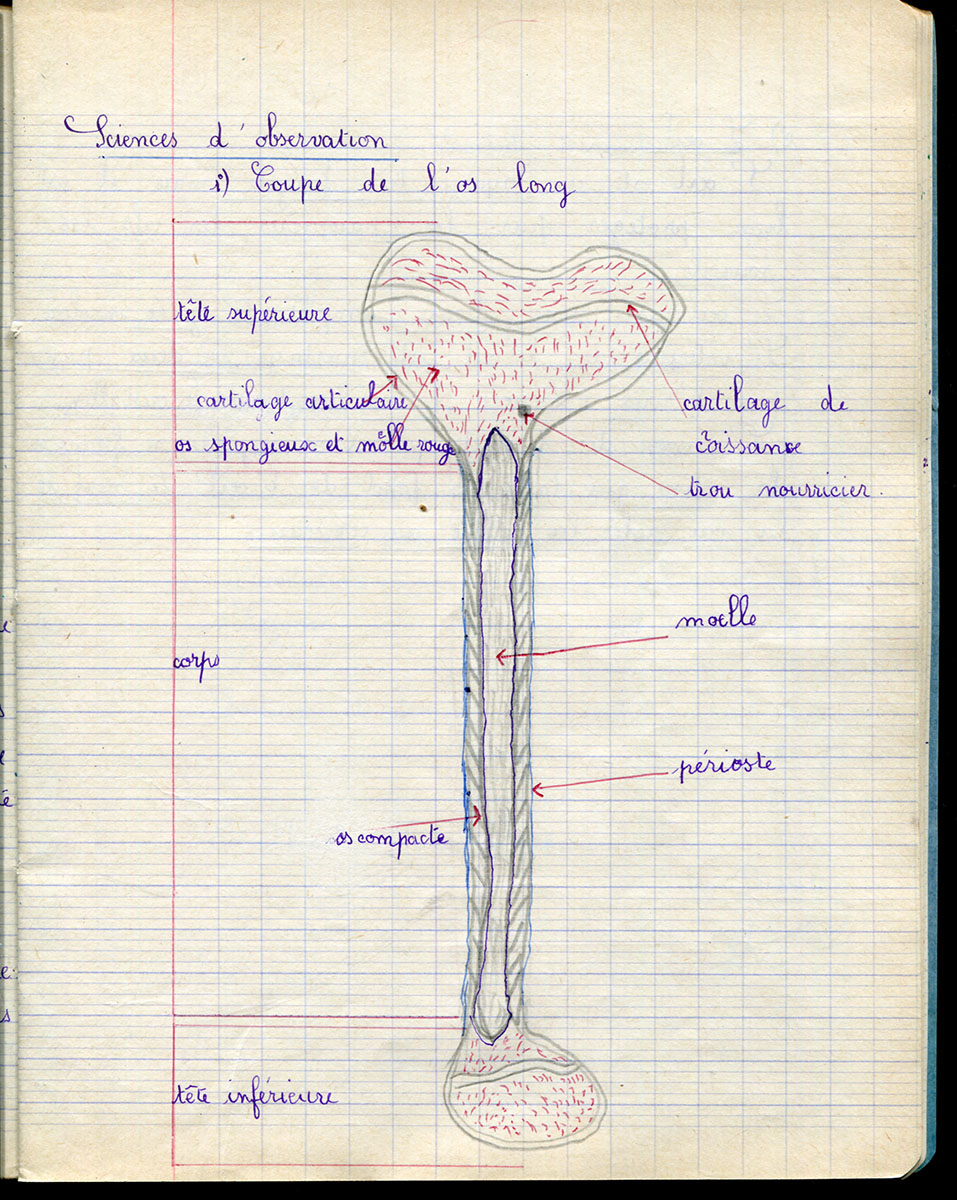 Sciences d'observation
1) Coupe de l'os long
tête supérieure
cartilage articulaire
os spongieux et moëlle rouge
cartilage de
croissance
trou nourricier.
moelle
corps
périoste
os compacte
tête inférieure